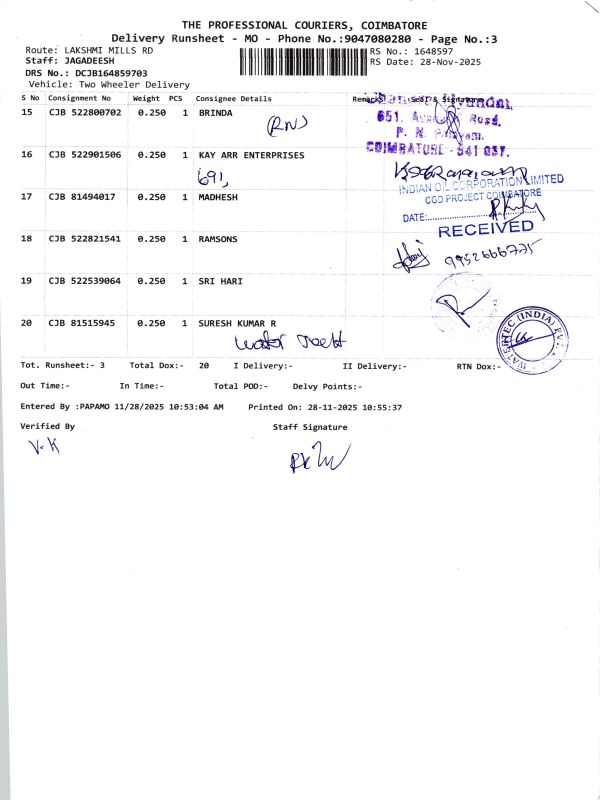 THE PROFESSIONAL COURIERS, COIMBATORE
Delivery Runsheet - MO - Phone No.:9047080280 - Page No.:3
Route: LAKSHMI MILLS RD
RS No.: 1648597
Staff: JAGADEESH
RS Date: 28-Nov-2025
DRS No.: DCJB164859703
Vehicle: Two Wheeler Delivery
S No Consignment No Weight PCS Consignee Details Remarks Seal & Signature
15 CJB 522800702 0.250 1 BRINDA
(RN)
651, Road,
COIMBATORE - 641 037.
16 CJB 522901506 0.250 1 KAY ARR ENTERPRISES
691,
INDIAN OIL CORPORATION LIMITED
CGD PROJECT COIMBATORE
17 CJB 81494017 0.250 1 MADHESH
DATE:
RECEIVED
18 CJB 522821541 0.250 1 RAMSONS
9952666775
19 CJB 522539064 0.250 1 SRI HARI
20 CJB 81515945 0.250 1 SURESH KUMAR R
WATERTEC (INDIA) PVT.
Tot. Runsheet:- 3 Total Dox:- 20 I Delivery:- II Delivery:- RTN Dox:-
Out Time:- In Time:- Total POD:- Delvy Points:-
Entered By :PAPAMO 11/28/2025 10:53:04 AM Printed On: 28-11-2025 10:55:37
Verified By Staff Signature
V.K